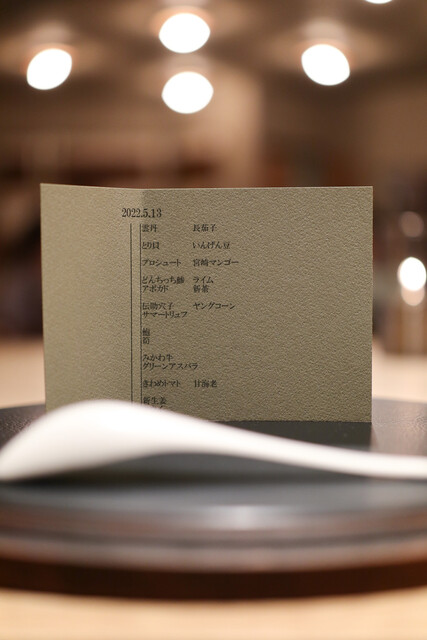 2022.5.13
雲丹 長茄子
とり貝 いんげん豆
プロシュート 宮崎マンゴー
どんちっち鯵 ライム
アボカド 新茶
伝助穴子 ヤングコーン
サマートリュフ
みかわ牛
グリーンアスパラ
きわめトマト 甘海老
新生姜